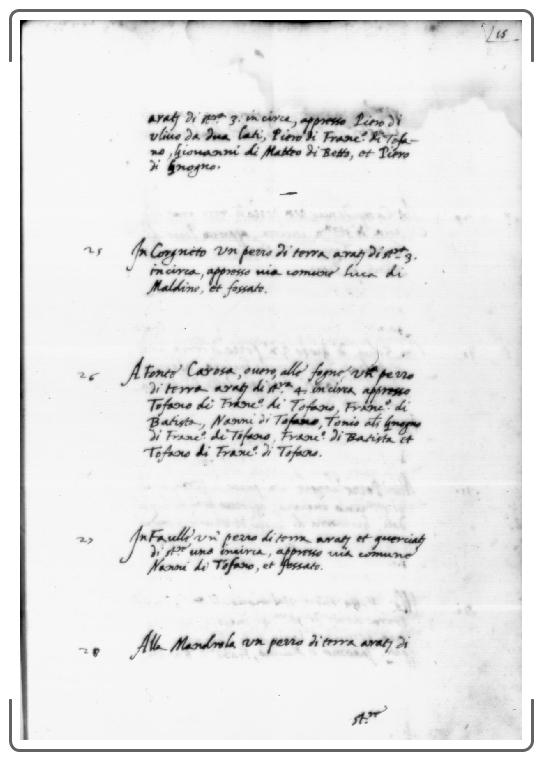 15
arat. di st.re 3. in circa, appresso Piero di
ulivo da dua lati, Piero di Franc.o di Tofa-
no, Giovanni di Matteo di Betto, et Piero
di Gnogno.
25 In Corgneto un pezzo di terra arat. di st.re 3.
in circa, appresso via comune luca di
Maldino, et fossato.
26 A Fonte Carosa, overo, alle fogne un pezzo
di terra arat. di st.ra 4. in circa appresso
Tofano di Franc.o di Tofano, Franc.o di
Batista, Nanni di Tofano, Tonio di Gnogno
di Franc.o di Tofano, Franc.o di Batista et
Tofano di Franc.o di Tofano.
27 In Faulle un pezzo di terra arat. et querciat.
di st.ro uno incirca, appresso via comune
Nanni di Tofano, et fossato.
28 Alla Mandrola un pezzo di terra arat. di
st.re